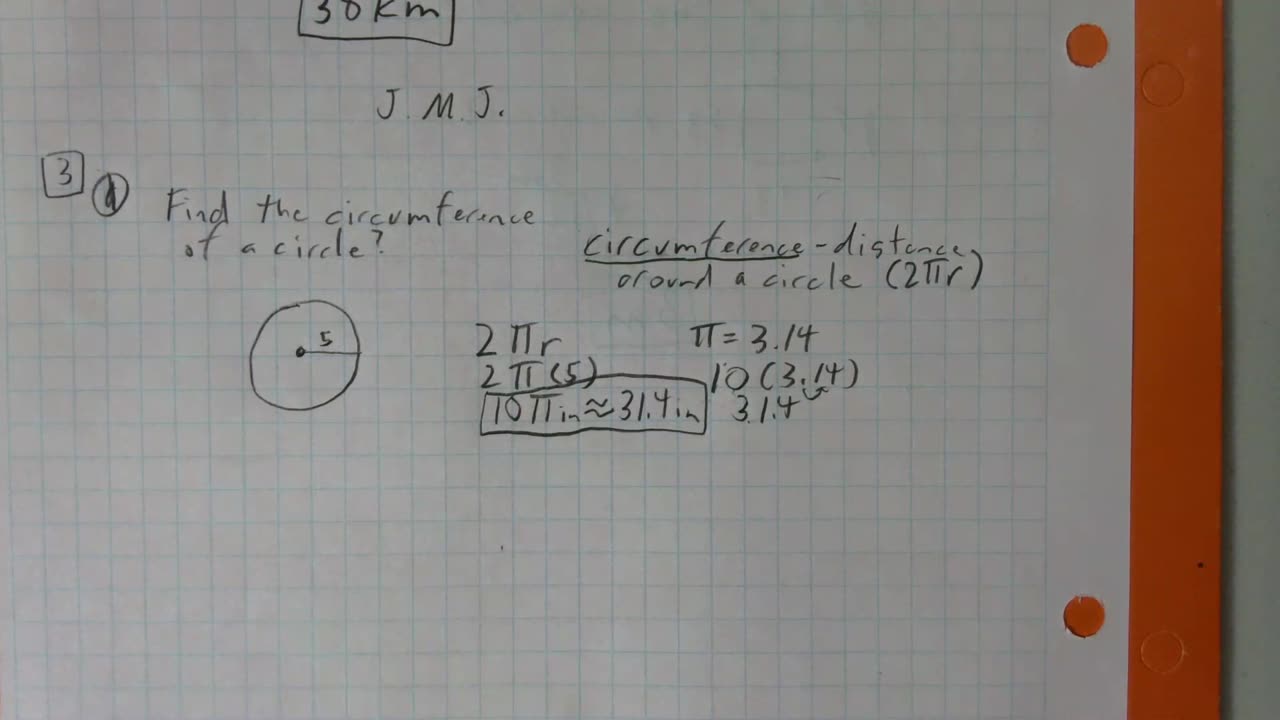 30 Km
J. M. J.
3
a Find the circumference
of a circle?
circumference - distance
around a circle (2πr)
5
2πr
π = 3.14
2π(5)
10(3.14)
10πin≈31.4in
31.4